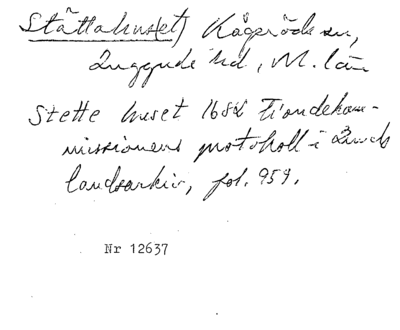 Stättahuset) Kågeröds sn,
Luggude hd, M. län
Stette huset 1682 Tiondekom-
missionens protokoll i Lunds
landsarkiv, fol. 959.
Nr 12637